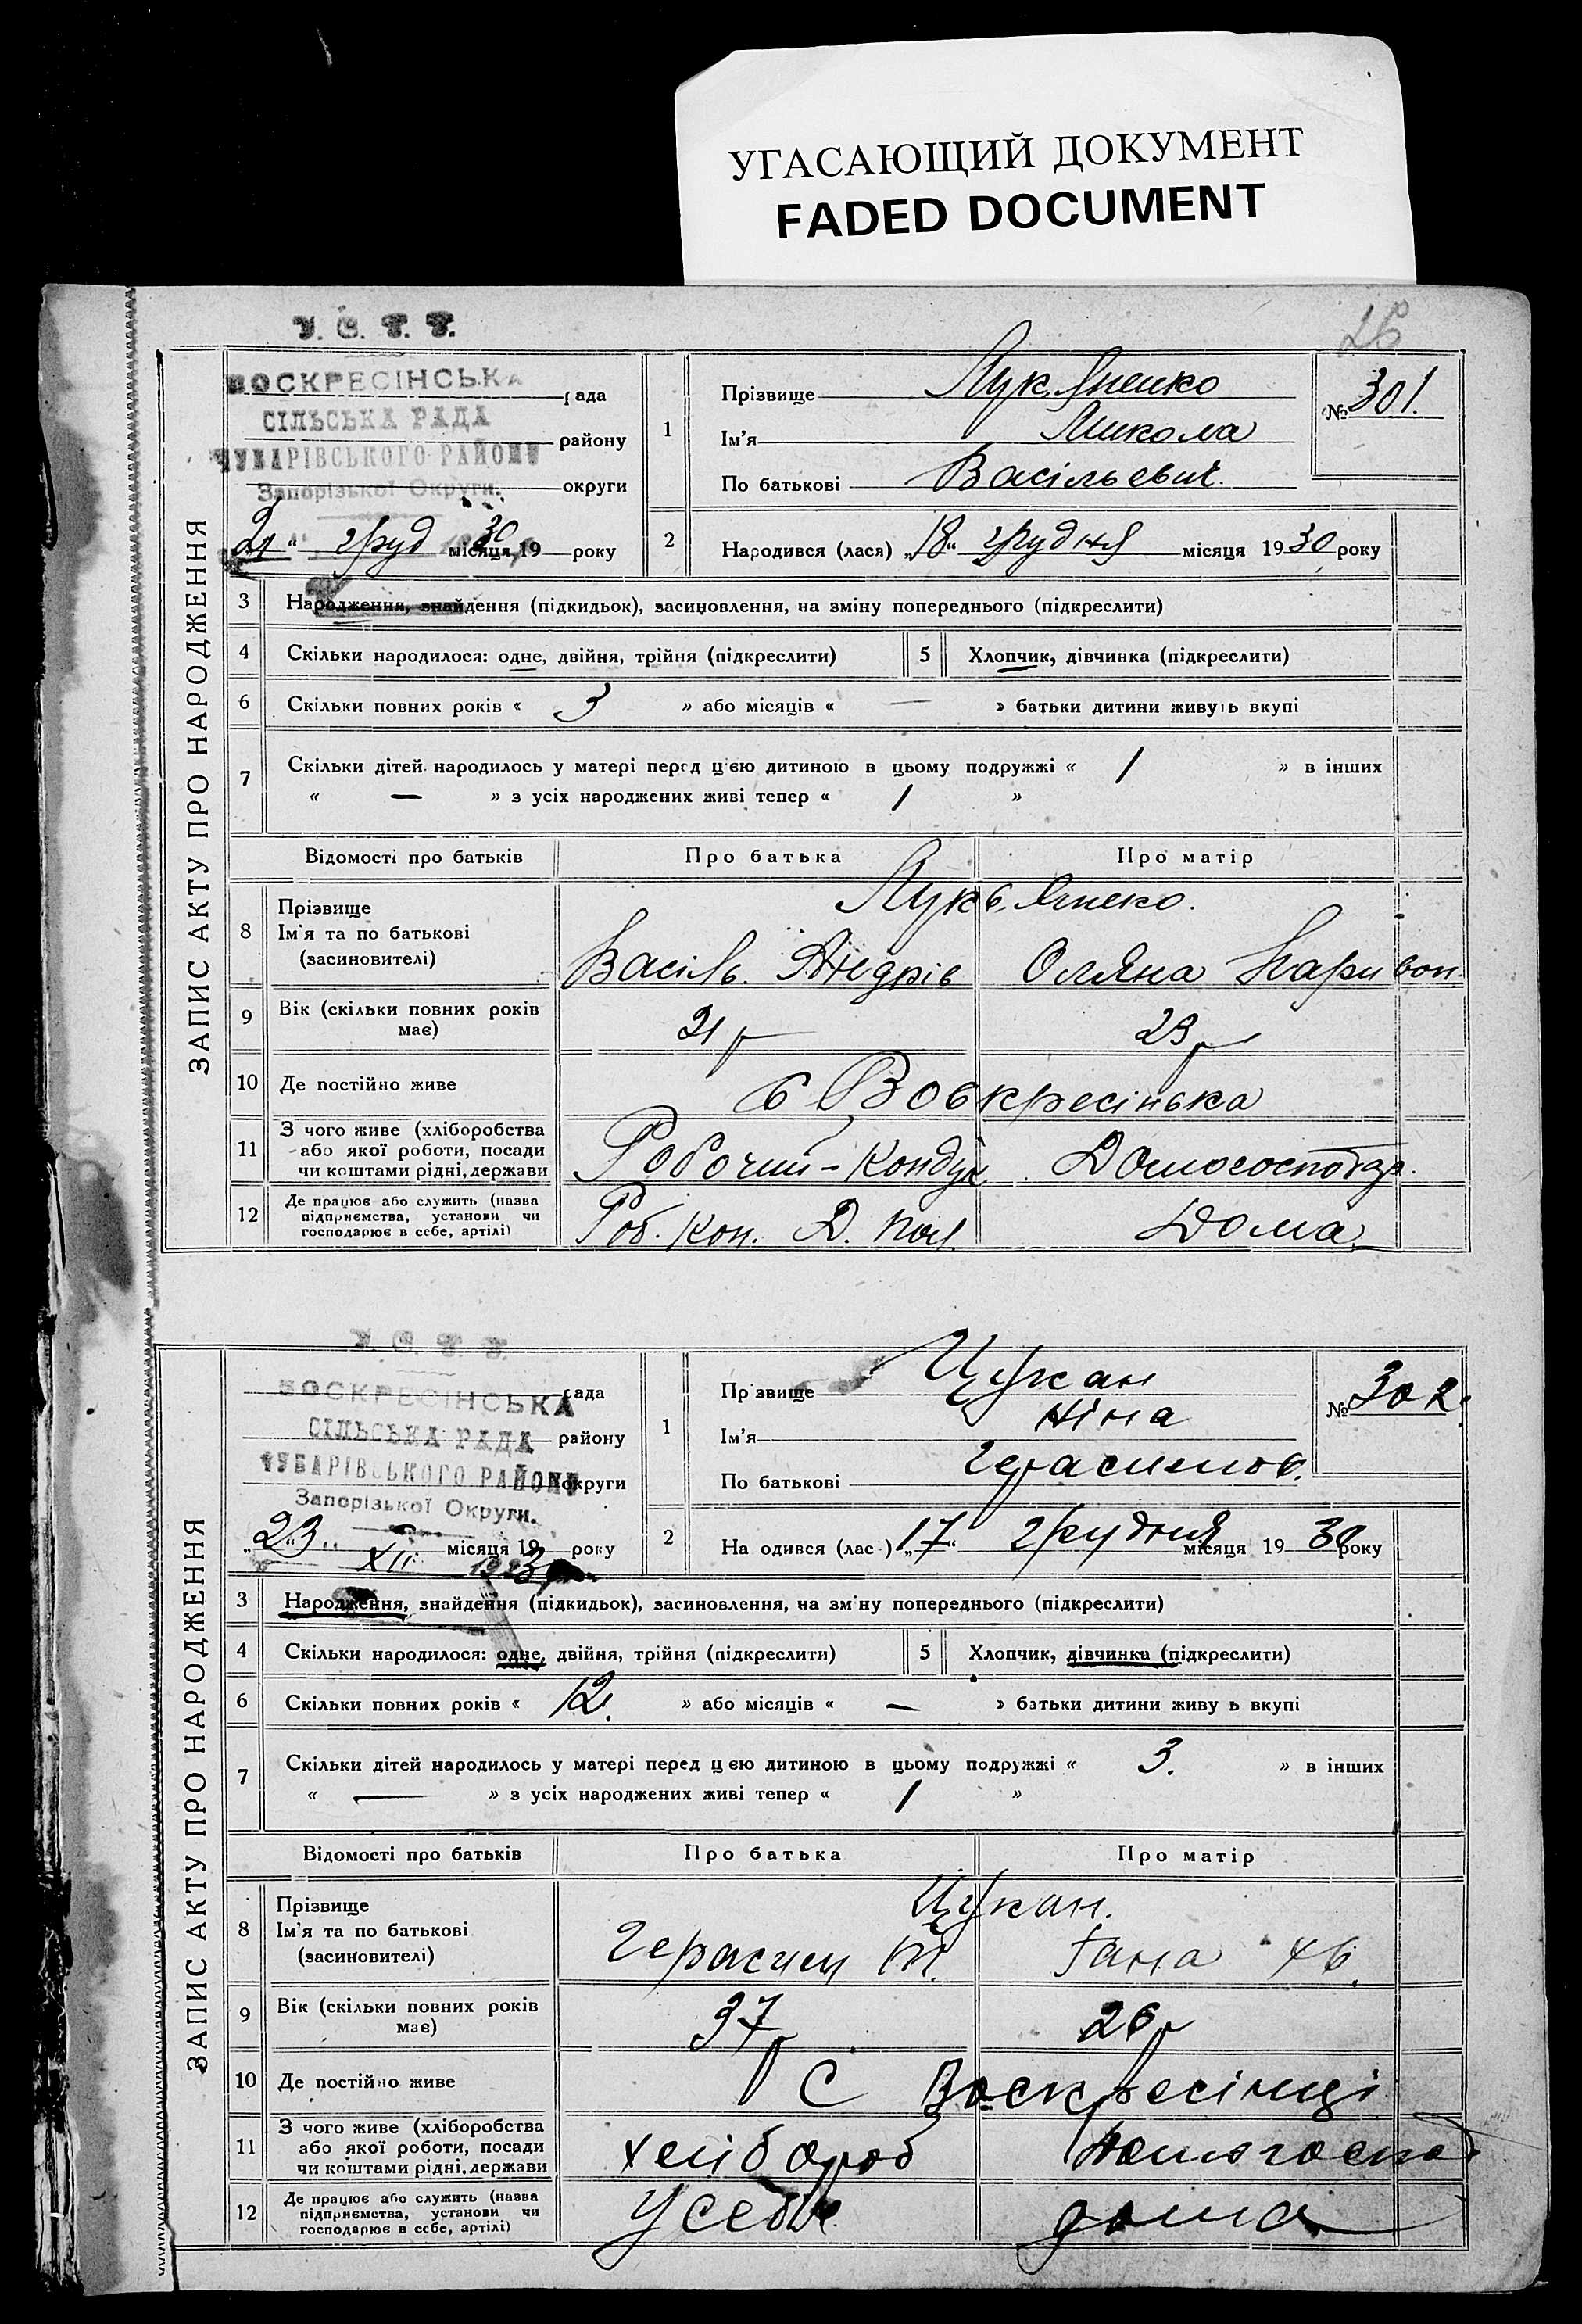 УГАСАЮЩИЙ ДОКУМЕНТ
FADED DOCUMENT
У. С. Т. Т.
26
ЗАПИС АКТУ ПРО НАРОДЖЕННЯ
ВОСКРЕСІНСЬКА рада
СІЛЬСЬКА РАДА району
ЧУБАРІВСЬКОГО РАЙОНУ
Запорізької Округи. округи
„21“ груд місяця, 1930 року
1 Прізвище Лук,Яненко
Ім'я Микола
По батькові Васільевич.
№ 301.
2 Народився (лася) „18“ грудня місяця 1930 року
3 Народження, знайдення (підкидьок), засиновлення, на зміну попереднього (підкреслити)
4 Скільки народилося: одне, двійня, трійня (підкреслити) 5 Хлопчик, дівчинка (підкреслити)
6 Скільки повних років « 3 » або місяців « — » батьки дитини живуть вкупі
7 Скільки дітей народилось у матері перед цією дитиною в цьому подружжі « 1 » в інших
« — » з усіх народжених живі тепер « 1 »
Відомості про батьків Про батька Про матір
8 Прізвище
Ім'я та по батькові
(засиновителі)
Лукь,Янеко.
Васіль. Андрів Оляна
9 Вік (скільки повних років має) 21 р 23 р
10 Де постійно живе с Воскресінька
11 З чого живе (хліборобства або якої роботи, посади чи коштами рідні, держави Робочий-Кондук Домогосподар.
12 Де працює або служить (назва підприємства, установи чи господарює в себе, артілі) Роб. Кон. Д. Дома.
У. С. Т. Т.
ЗАПИС АКТУ ПРО НАРОДЖЕННЯ
ВОСКРЕСІНСЬКА рада
СІЛЬСЬКА РАДА району
ЧУБАРІВСЬКОГО РАЙОНУ округи
Запорізької Округи.
„23“ місяця 19 року
XII
1 Прізвище Цукан
Ім'я Ніна
По батькові Герасимов.
№ 302.
2 На одився (лас ) „17“ грудня місяця 1930 року
3 Народження, знайдення (підкидьок), засиновлення, на зміну попереднього (підкреслити)
4 Скільки народилося: одне, двійня, трійня (підкреслити) 5 Хлопчик, дівчинка (підкреслити)
6 Скільки повних років « 12. » або місяців « — » батьки дитини живу ь вкупі
7 Скільки дітей народилось у матері перед цією дитиною в цьому подружжі « 3. » в інших
« — » з усіх народжених живі тепер « 1 »
Відомості про батьків Про батька Про матір
8 Прізвище
Ім'я та по батькові
(засиновителі)
Цукан.
Герасим М. Гана
9 Вік (скільки повних років має) 37 р 26 р
10 Де постійно живе С Воскресінці
11 З чого живе (хліборобства або якої роботи, посади чи коштами рідні, держави хлібороб Домогоспод
12 Де працює або служить (назва підприємства, установи чи господарює в себе, артілі) Усебе дома